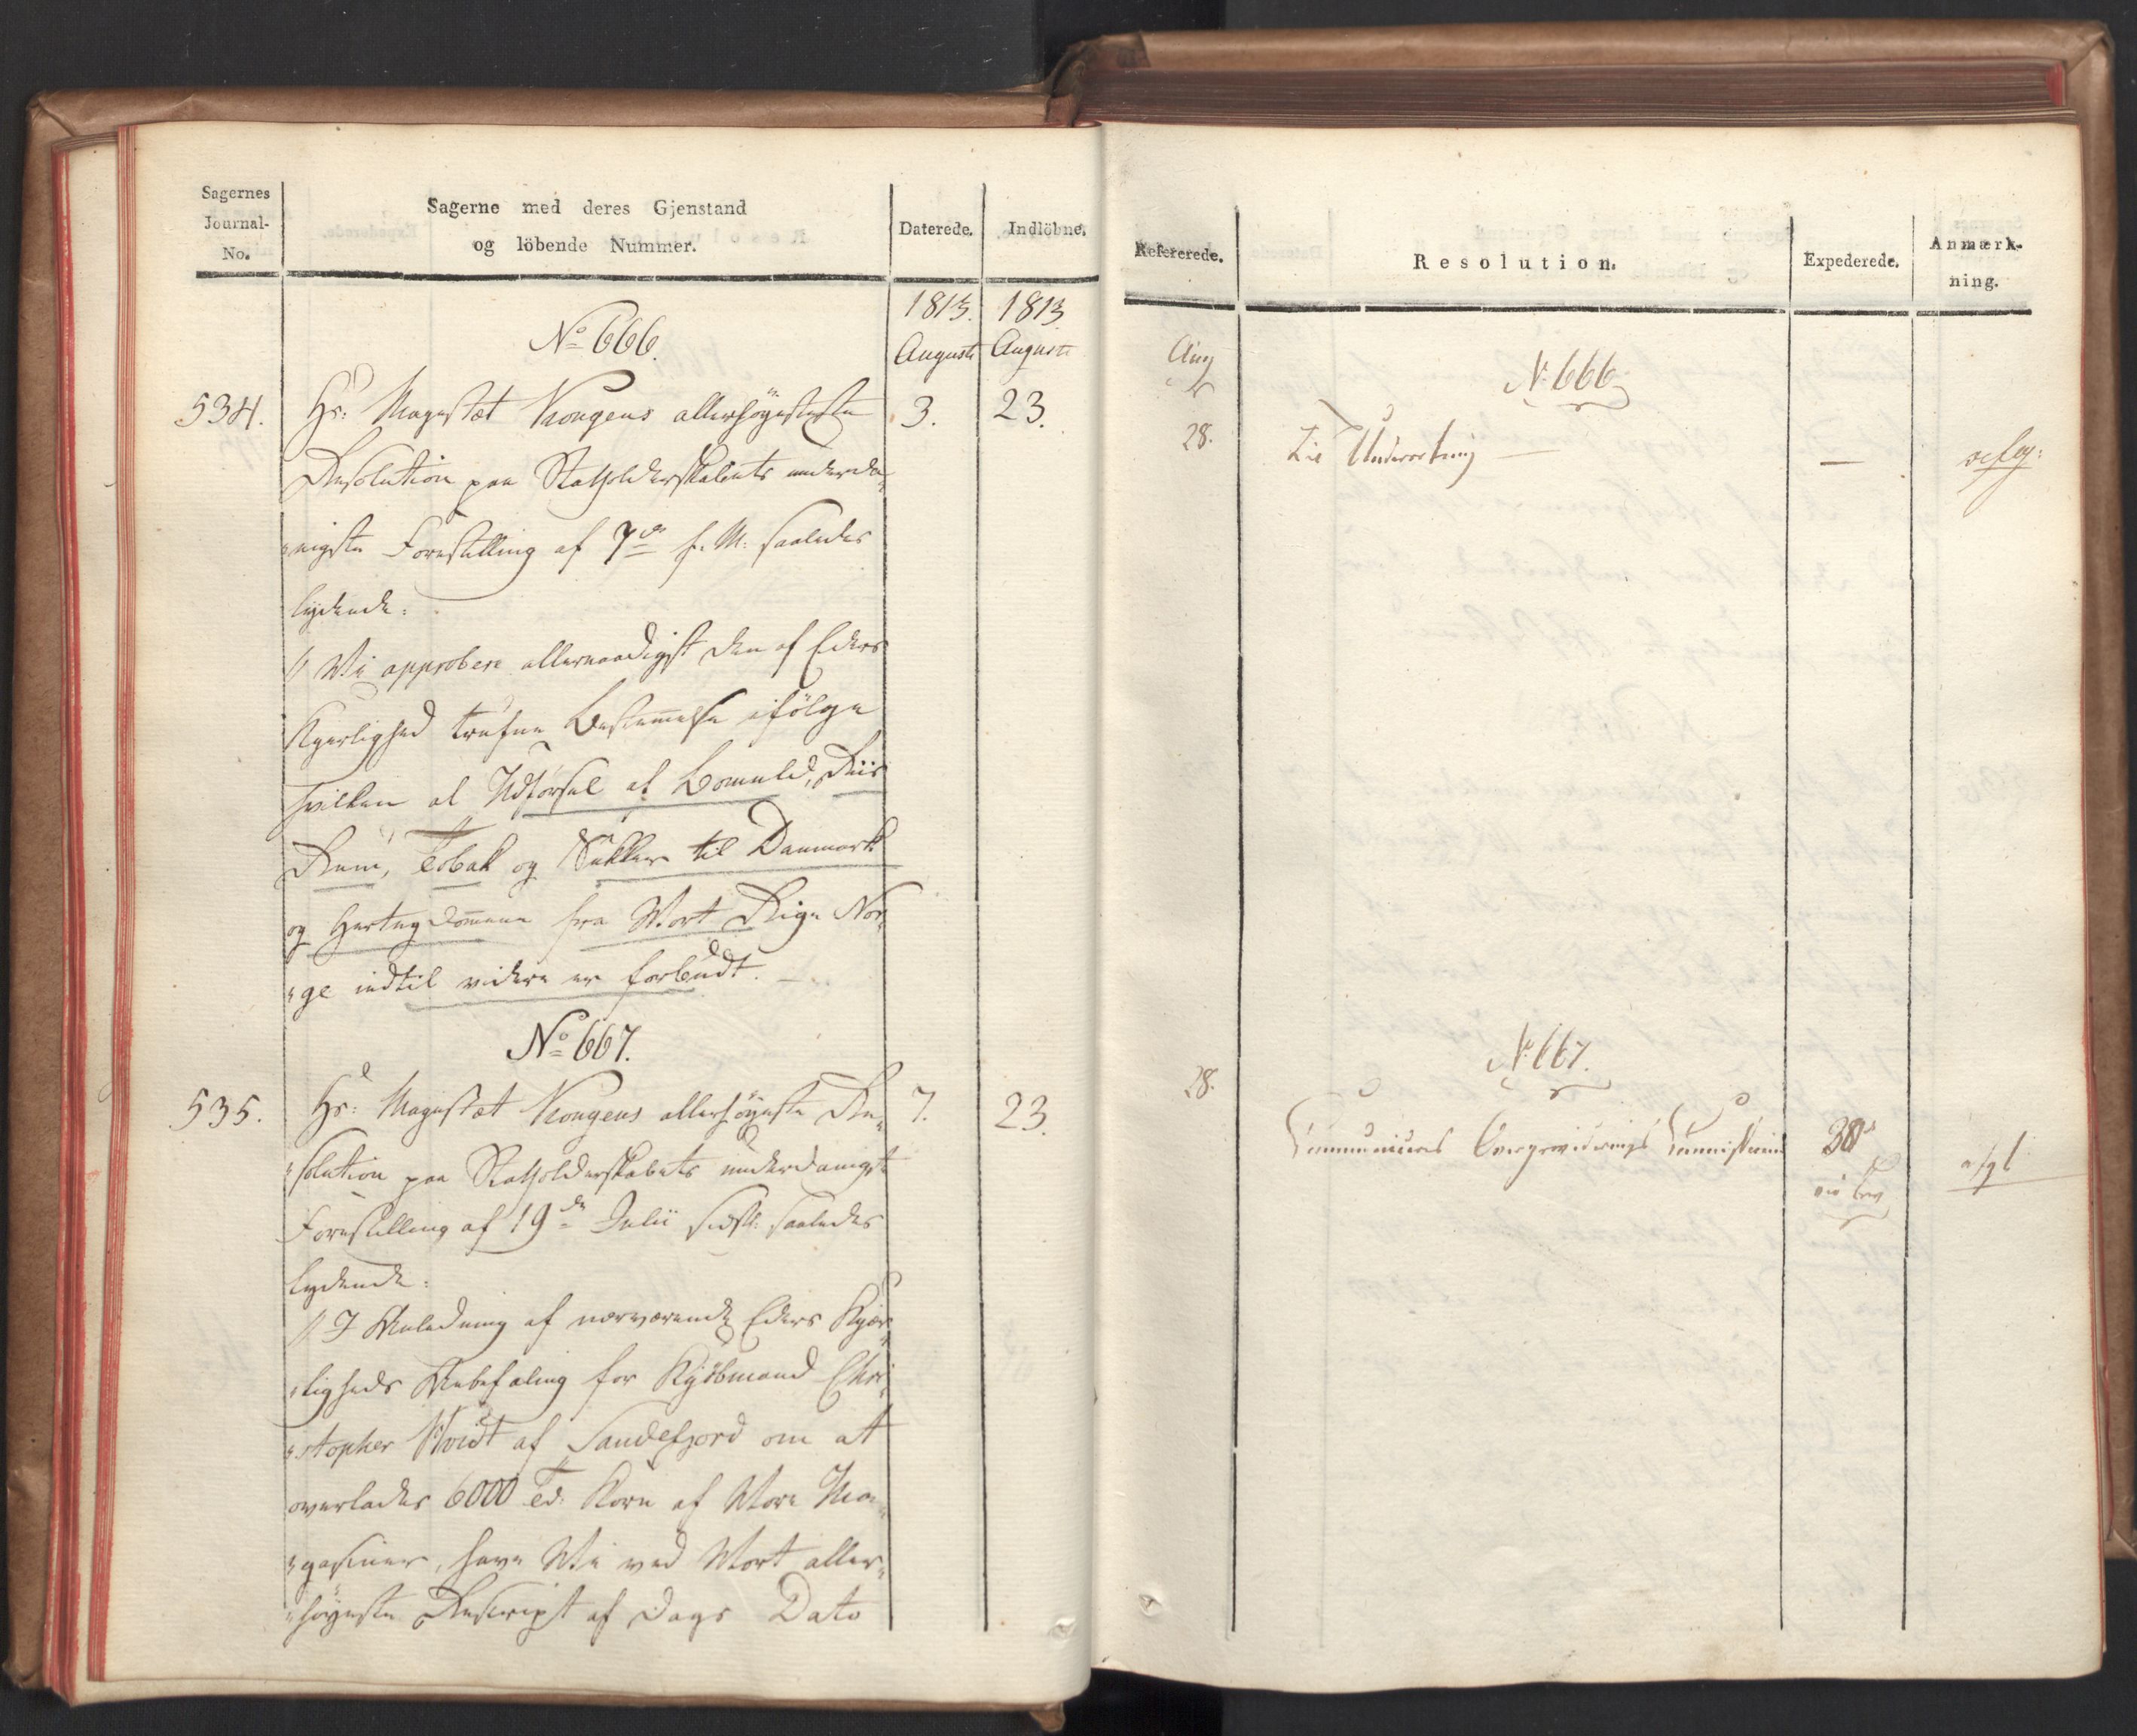 Sagernes
Journal-
No.
Sagerne med deres Gjenstand
og löbende Nummer.
Daterede.
Indlöbne.
1813. 1813
August August
No 666.
534. Hs: Majestæt Kongens allerhöyesteste 3. 23.
Resolution paa Statholderskabets underda-
nigste Forestilling af 7de f. M: saaledes
lydende:
"Vi approbere allernaadigst den af Eders
Kjerlighed trufne Bestemmelse ifölge
hvilken al Udförsel af Bomuld, Riis
Rum, Tobak og Sukker til Danmark
og Hertugdömmene fra Vort Rige Nor-
ge indtil videre er forbudt.
No 667.
535. Hs: Majestæt Kongens allerhöyeste Re- 7. 23.
solution paa Statholderskabets underdanigste
Forestilling af 19de Julii sidstl: saaledes
lydende:
"I Anledning af nærværende Eders Kjær-
ligheds Anbefaling for Kjöbmand Chri-
stopher Hvidt af Sandefjord om at
overlades 6000 Td: Korn af Vore Ma-
gasiner, have Vi ved Vort aller-
höyeste Rescript af Dags Dato
Refererede.
Resolution.
Expederede.
Anmærk-
ning.
Aug
No 666
28. Til Underretning — —
No 667.
28.
Communiceres Overproviderings Commissionen 30